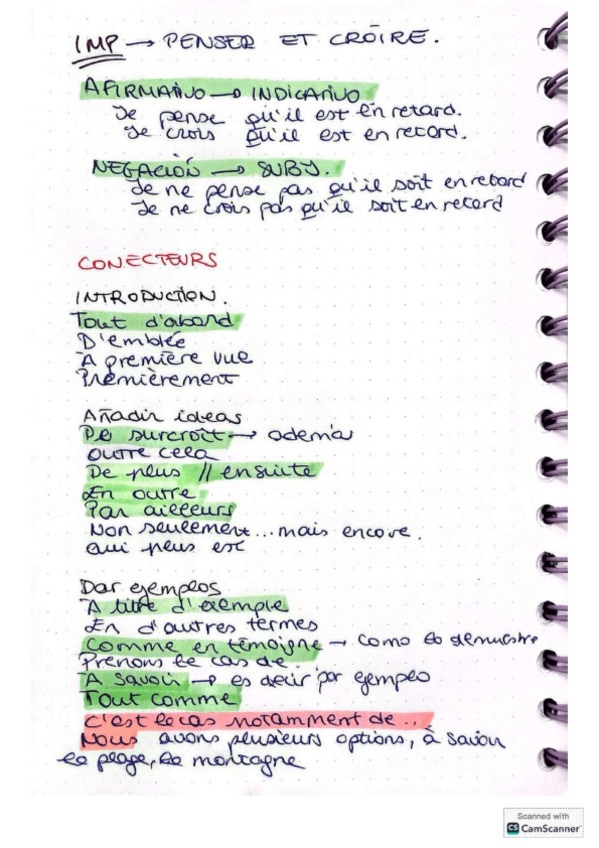 IMP → PENSER ET CROIRE.
AFIRMATIVO → INDICATIVO
Je pense qu'il est en retard.
Je crois qu'il est en retard.
NEGACIÓN → SUBJ.
Je ne pense pas qu'il soit en retard
Je ne crois pas qu'il soit en retard
CONECTEURS
INTRODUCTION.
Tout d'abord
D'emblée
A première vue
Premièrement
Añadir ideas
De surcroît → además
Outre cela
De plus // ensuite
En outre
Par ailleurs
Non seulement...mais encore.
Qui plus est
Dar ejemplos
A titre d'exemple
En d'autres termes
Comme en témoigne → como lo demuestra
Prenons le cas de..
A savoir → es decir, por ejemplo
Tout comme
C'est le cas notamment de...
Nous avons plusieurs options, à savoir
la plage, la montagne
Scanned with
CS CamScanner